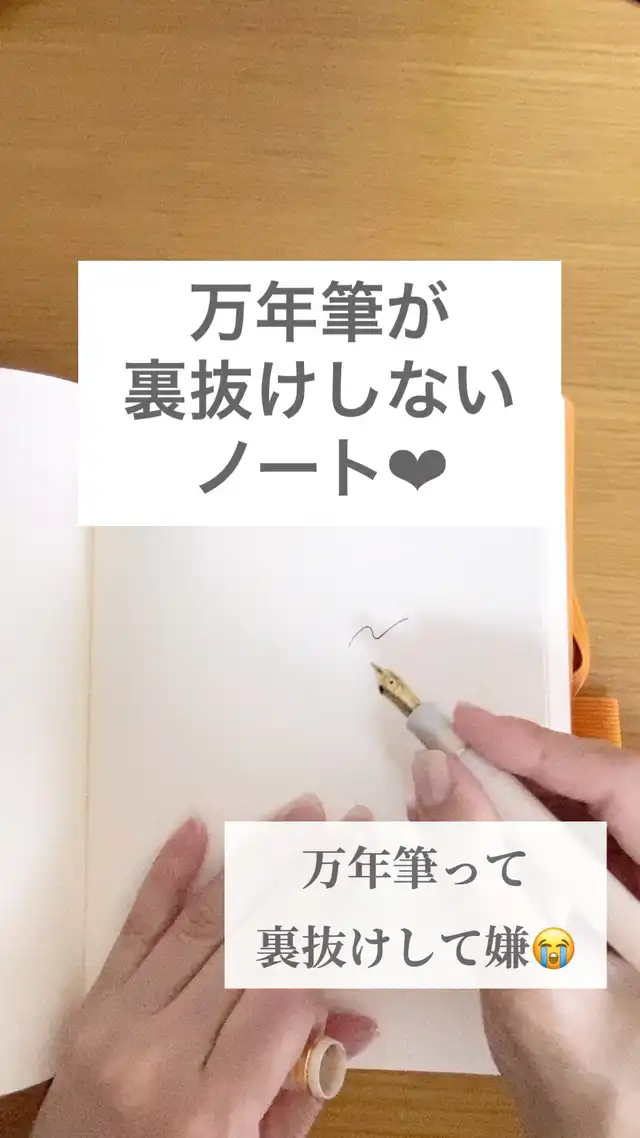 万年筆が
裏抜けしない
ノート❤
万年筆って
裏抜けして嫌😭